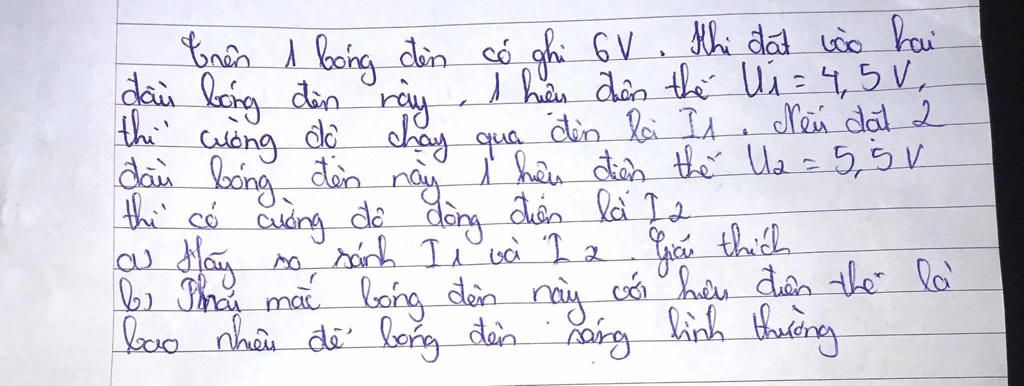 Trên 1 bóng đèn có ghi 6V. Khi đặt vào hai
đầu bóng đèn này, 1 hiệu điện thế U1 = 4,5V,
thì cường độ chạy qua đèn là I1. Nếu đặt 2
đầu bóng đèn này 1 hiệu điện thế U2 = 5,5V
thì có cường độ dòng điện là I2
a) Hãy so sánh I1 và I2. Giải thích
b) Phải mắc bóng đèn này với hiệu điện thế là
bao nhiêu để bóng đèn sáng bình thường